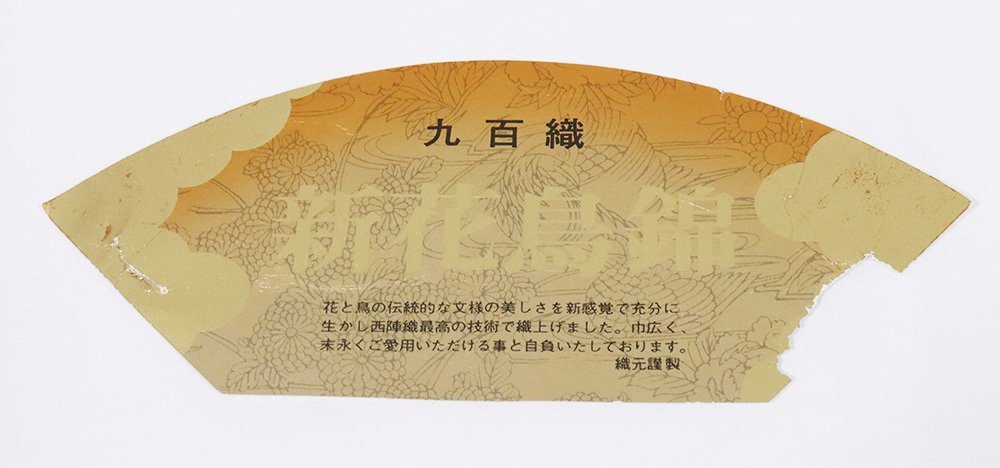 九百織
新花鳥錦
花と鳥の伝統的な文様の美しさを新感覚で充分に
生かし西陣織最高の技術で織上げました。巾広く、
末永くご愛用いただける事と自負いたしております。
織元謹製